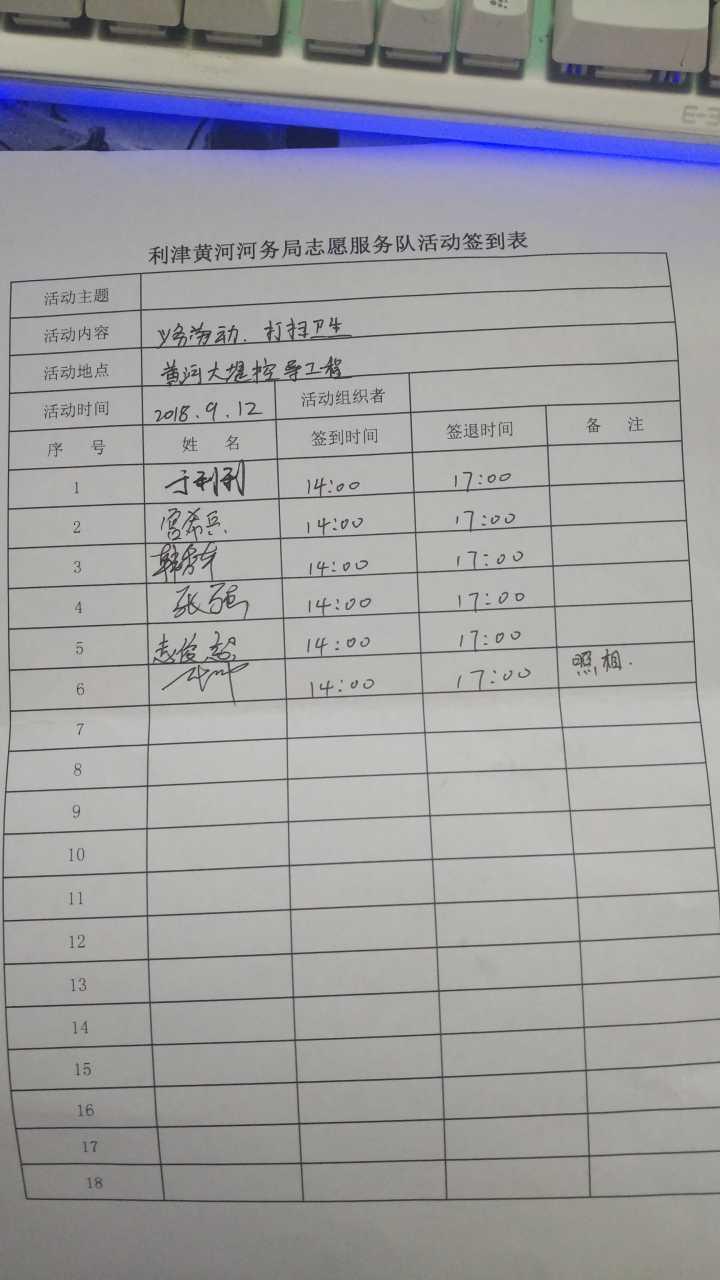 E-3
利津黄河河务局志愿服务队活动签到表
活动主题
活动内容 义务劳动、打扫卫生
活动地点 黄河大堤控导工程
活动时间 2018.9.12 活动组织者
序 号 姓 名 签到时间 签退时间 备 注
1 于利利 14:00 17:00
2 宫希兵 14:00 17:00
3 14:00 17:00
4 张强 14:00 17:00
5 14:00 17:00
6 14:00 17:00 照相.
7
8
9
10
11
12
13
14
15
16
17
18